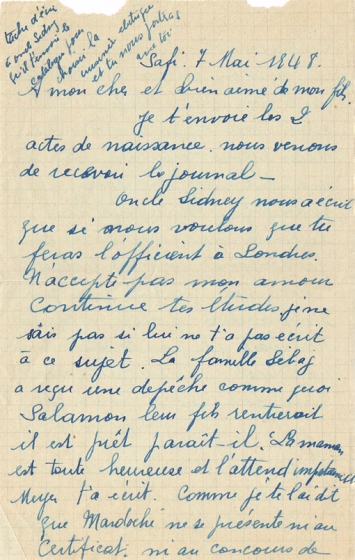 tâche d'écrire
à oncle Sidney
qu'il t'envoie le
catalogue pour
choisir la
machine électrique
et tu nous portras
avec toi
Safi. 7 Mai 1948.
A mon cher et bien aimé de mon fils.
je t'envoie les 2
actes de naissance. nous venons
de recevoir le journal_
Oncle Sidney nous a écrit
que si nous voulons que tu
feras l'officient à Londres.
N'accepte pas mon amour
Continue tes études je ne
sais pas si lui ne t'a pas écrit
à ce sujet. La famille Sebag
a reçu une depêche comme quoi
Salamon leur fils rentrerait
il est prêt paraît-il. La maman
est toute heureuse et l'attend
Meyer t'a écrit. Comme je te l'ai dit
que Mardoché ne se présente ni au
Certificat. ni au concours de